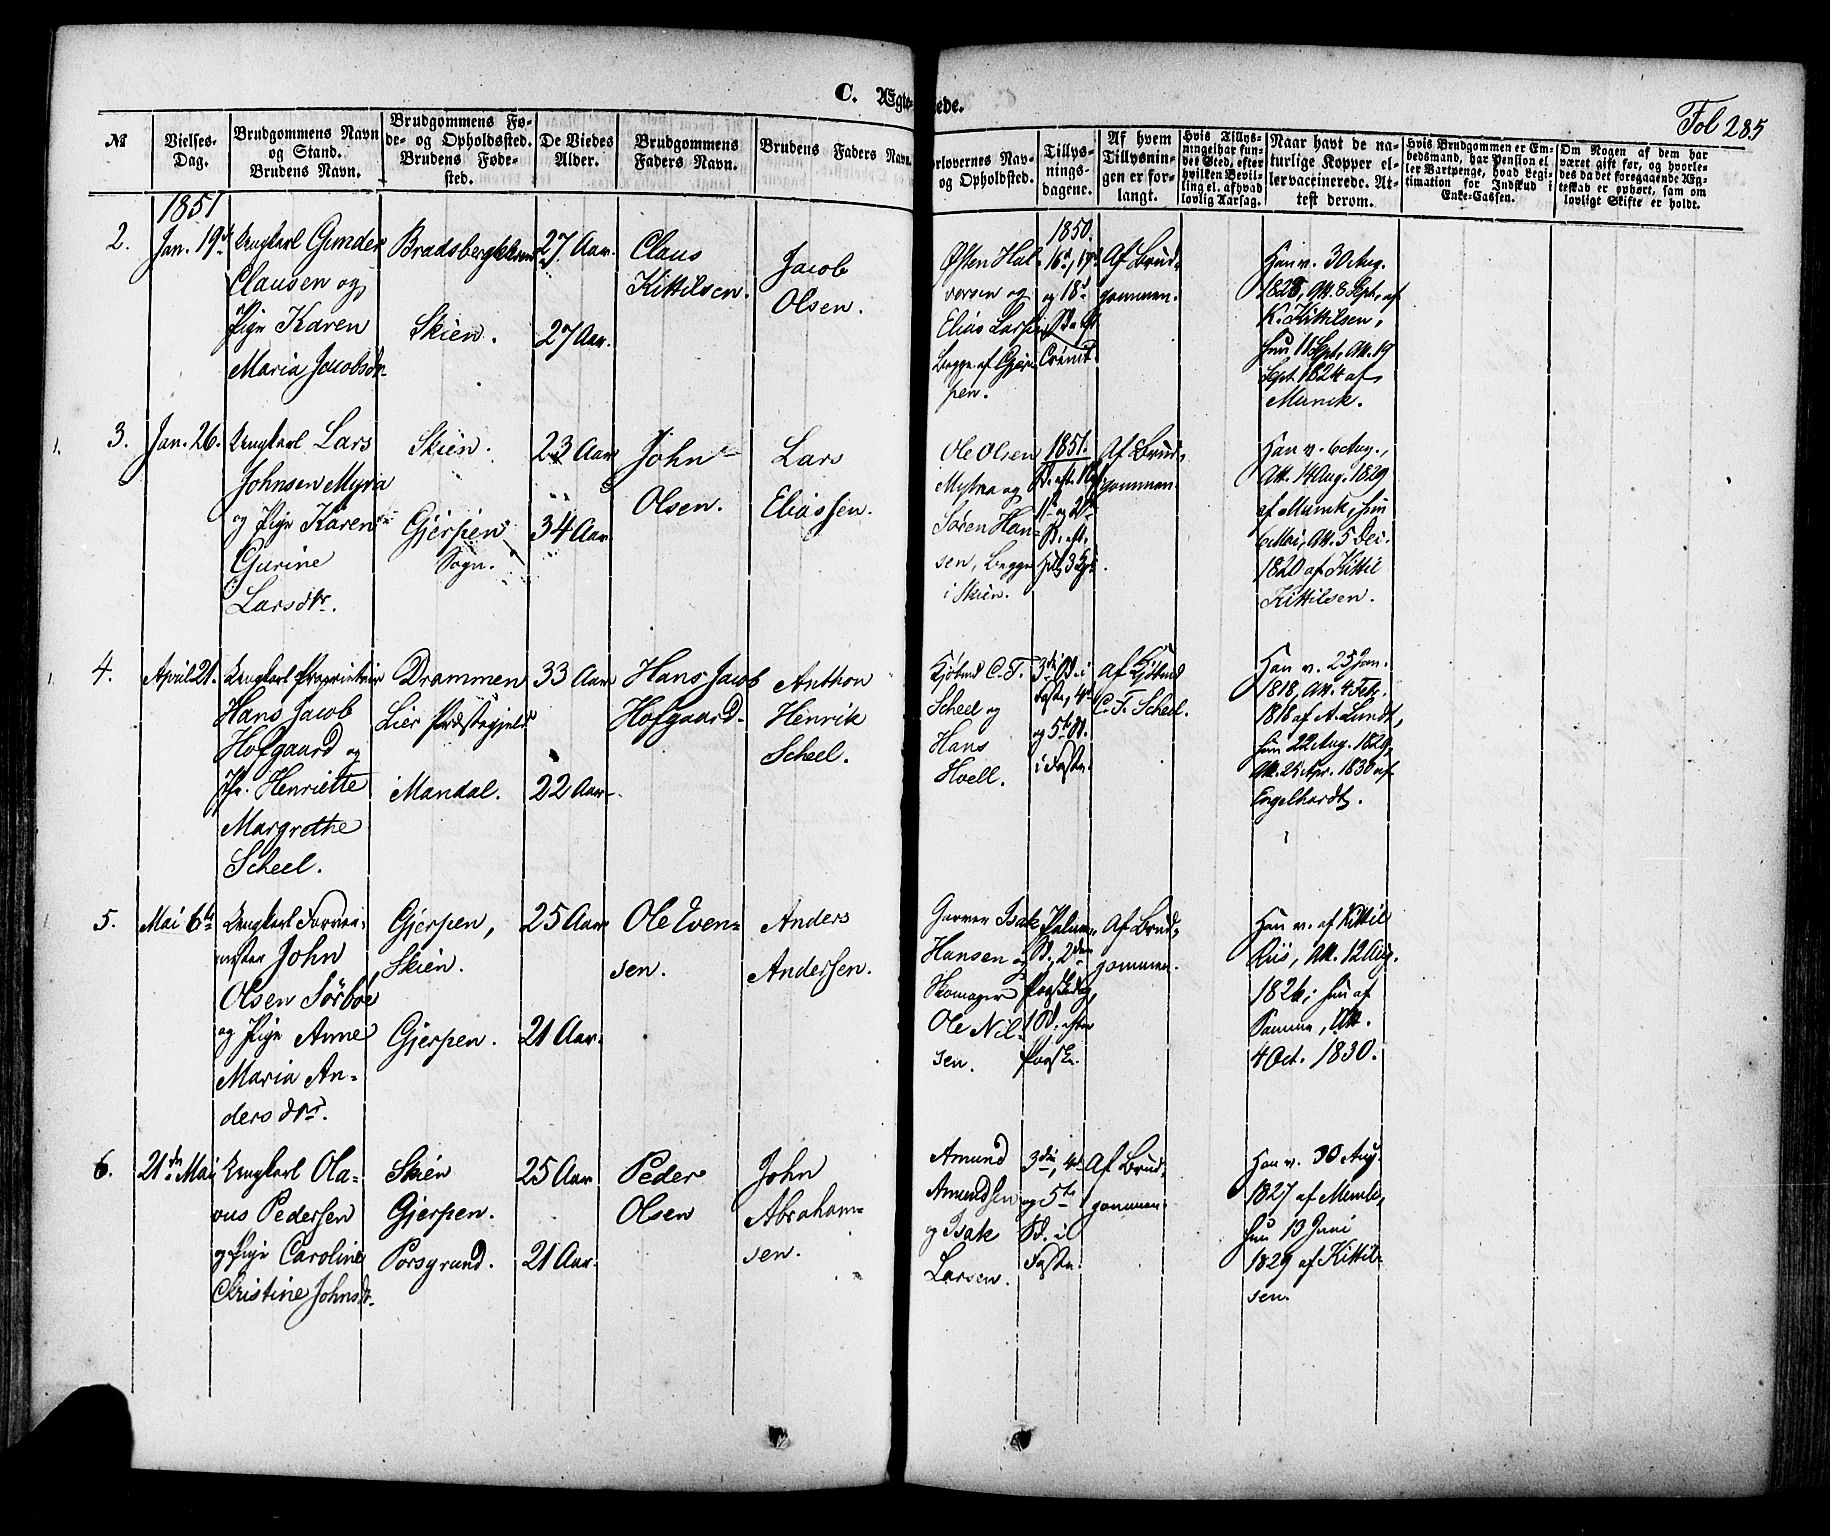 C. Ægte- ede.
Fol 285
№
Vielses-
Dag.
Brudgommens Navn
og Stand.
Brudens Navn.
Brudgommens Fø-
de- og Opholdssted.
Brudens Føde-
sted.
De Viedes
Alder.
Brudgommens
Faders Navn.
Brudens Faders Navn.
orlovernes Nav-
og Opholdsted.
Tillys-
nings-
dagene.
Af hvem
Tillysnin-
gen er for-
langt.
Hvis Tillys-
ningel har fun-
det Sted, efter
hvilken Bevil-
ling el. afhvad
lovlig Aarsag.
Naar havt de na-
turlige Kopper el-
ler vaccinerede. At-
test derom.
Hvis Brudgommen er Em-
bedsmand, har Pension el
ler Vartpenge, hvad Legi-
timation for Indskud i
Enke-Cassen.
Om Nogen af dem har
været gift før, og hvorle-
des da det foregaaende Æg-
teskab er ophørt, sam om
lovligt Skifte er holdt.
1851
2.
Jan. 19
Ungkarl Gunder
Clausen og
Pige Karen
Maria Jacobsdr
Skien.
27 Aar.
27 Aar.
Claus
Kittilsen.
Jacob
Olsen.
Østen Hal-
vorsen og
Elias Lars
Begge af Gjer-
pen.
1850.
16d, 17d
og 18d
S. e. Ft
Trinit.
Af Brud-
gommen.
Han v. 30 Aug.
Att. 8 Sept. af
K. Kittilsen,
hun 11 Sept. Att. 19
Sept. 1824 af
Munk.
3.
Jan. 26.
Ungkarl Lars
Johnsen Myra
og Pige Karen
Gurine
Larsdtr.
Skien.
Gjerpen
Sogn.
23 Aar
34 Aar
John
Olsen.
Lars
Eliassen.
Ole Olsen
Myhra og
Søren Han-
sen, begge
i Skien.
1851.
1ste og 2den
S. eft.
Af Brud-
gommen.
Han v. 6 Aug.,
Att. 14 Aug. 1829
af Munk, hun
6 Mai, Att. 5 Dec.
1820 af Kittil
Kittilsen.
4.
April 21.
Ungkarl Proprietair
Hans Jacob
Hofgaard og
Jfr. Henriette
Margrethe
Scheel.
Drammen
Lier Præstegjeld
Mandal.
33 Aar
22 Aar.
Hans Jacob
Hofgaard.
Anthon
Henrik
Scheel.
Kjøbmd C. F.
Scheel og
Hans
Hoell.
3die S. i
Faste, 4de
og 5te S.
i Faste.
Af Kjøbmd
C. F. Scheel.
Han v. 25 Jan.
1818, Att. 4 Feb.
1818 af A. Lundt,
hun 22 Aug. 1829,
Att. 25 Apr. 1830 af
Engelhardt.
5.
Mai 6te
Ungkarl Farve-
mester John
Olsen Sörböe
og Pige Anne
Maria An-
dersdtr.
Gjerpen,
Skien.
Gjerpen.
25 Aar
21 Aar.
Ole Even-
sen.
Anders
Andersen.
Garver Isak
Hansen og
Skomager
Ole Nil-
sen.
Palme
S., 2den
Paaskedag,
1 S. efter
Paaske.
Af Brud-
gommen.
Han v. af Kittil
Riis, Att. 12 Aug.
1826; hun af
Samme, Att.
4 Oct. 1830.
6.
21de Mai
Ungkarl Ola-
vus Pedersen
og Pige Caroline
Christine Johnsdr.
Skien
Gjerpen.
Porsgrund.
25 Aar
21 Aar.
Peder
Olsen
John
Abraham-
sen.
Amund
Amundsen
og Isak
Larsen.
3die, 4de
og 5te
S. i
Faste.
Af Brud-
gommen.
Han v. 30 Aug.
1827 af Munk,
hun 13 Juni
1829 af Kittil-
sen.